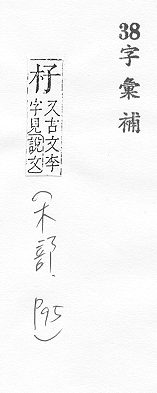 38字彙補
杍
又古文李
字見說文
(木部.
P95)